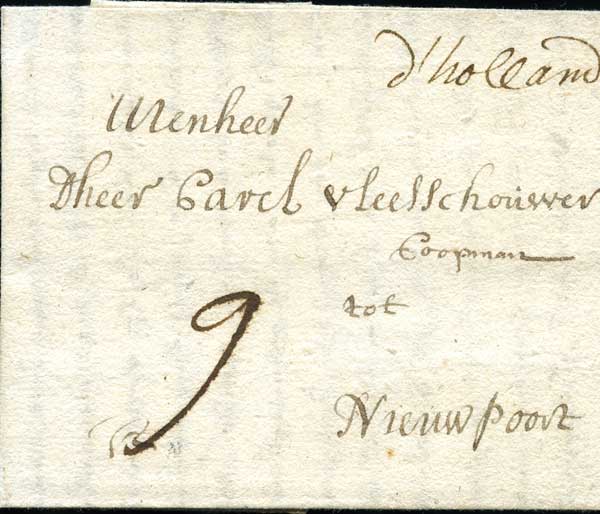 d'holland
Menheer
Dheer Carel vleesschouwer
Coopman
tot
9
Nieuwpoort